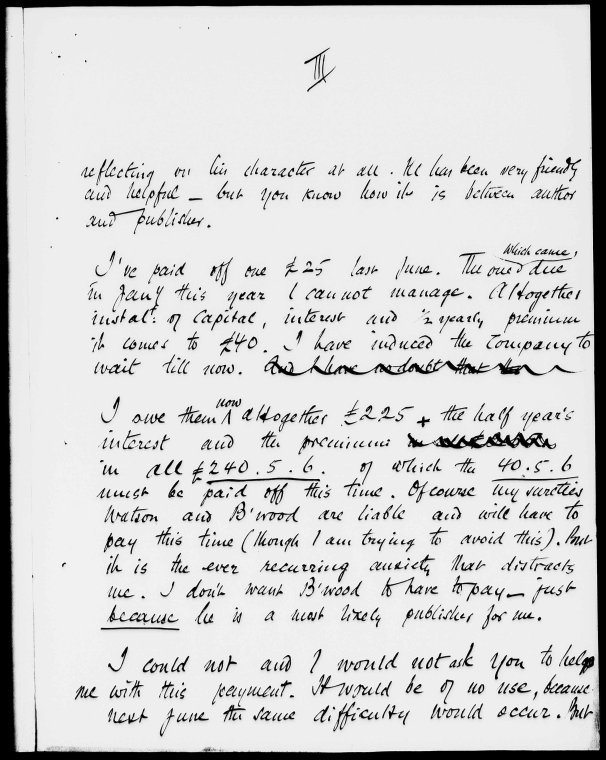 III
reflecting on his character at all. He has been very friendly
and helpful — but you know how it is between author
and publisher.
which came,
I've paid off one £25 last June. The one due
in Jany this year I cannot manage. Altogether
instalt. of Capital, interest and ½ yearly premium
it comes to £40. I have induced the Company to
wait till now. And I have no doubt that the
now
I owe them altogether £225 + the half year's
interest and the premium
in all £240.5.6. of which the 40.5.6
must be paid off this time. Of course my sureties
Watson and B'wood are liable and will have to
pay this time (though I am trying to avoid this). But
it is the ever recurring anxiety that distracts
me. I don't want B'wood to have to pay — just
because he is a most likely publisher for me.
I could not and I would not ask you to help
me with this payment. It would be of no use, because
next June the same difficulty would occur. But